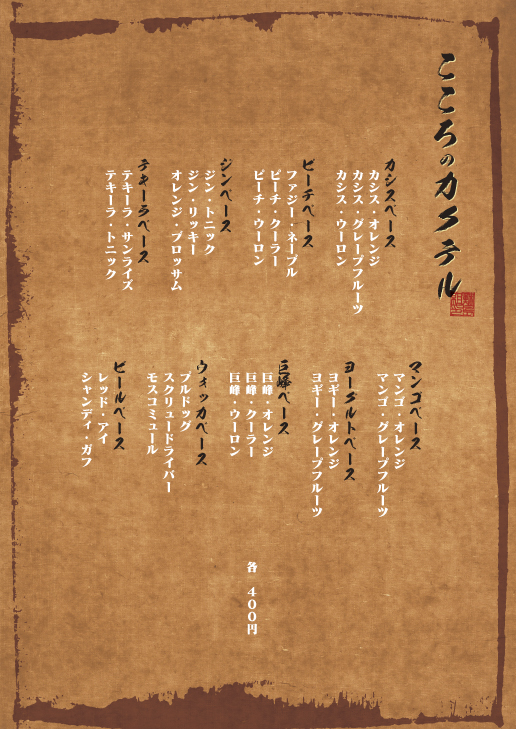 こころのカクテル
カシスベース
カシス・オレンジ
カシス・グレープフルーツ
カシス・ウーロン
ピーチベース
ファジー・ネーブル
ピーチ・クーラー
ピーチ・ウーロン
ジンベース
ジン・トニック
ジン・リッキー
オレンジ・ブロッサム
テキーラベース
テキーラ・サンライズ
テキーラ・トニック
マンゴベース
マンゴ・オレンジ
マンゴ・グレープフルーツ
ヨーグルトベース
ヨギー・オレンジ
ヨギー・グレープフルーツ
巨峰ベース
巨峰・オレンジ
巨峰・クーラー
巨峰・ウーロン
ウォッカベース
ブルドッグ
スクリュードライバー
モスコミュール
ビールベース
レッド・アイ
シャンディ・ガフ
各 400円